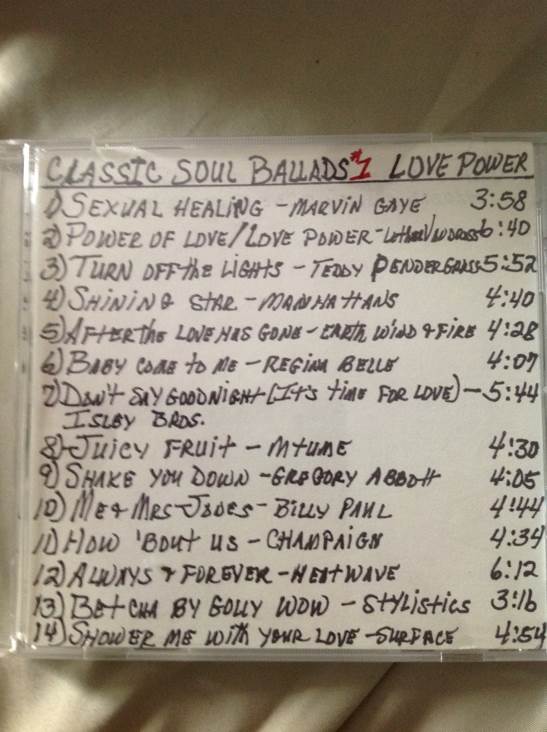 CLASSIC SOUL BALLADS #1 LOVE POWER
1) SEXUAL HEALING - MARVIN GAYE 3:58
2) POWER OF LOVE/LOVE POWER - Luther Vandross 6:40
3) TURN OFF the LIGHTS - TEDDY PENDERGRASS 5:52
4) SHINING STAR - MANHATTANS 4:40
5) AFTER the LOVE HAS GONE - EARTH, WIND & FIRE 4:28
6) BABY COME TO ME - REGINA BELLE 4:07
7) DON'T SAY GOODNIGHT (IT'S TIME FOR LOVE) - 5:44
ISLEY BROS.
8) JUICY FRUIT - MTUME 4:30
9) SHAKE YOU DOWN - GREGORY ABBOTT 4:05
10) ME & MRS JONES - BILLY PAUL 4:44
11) HOW 'BOUT US - CHAMPAIGN 4:34
12) ALWAYS & FOREVER - HEATWAVE 6:12
13) BETCHA BY GOLLY WOW - STYLISTICS 3:16
14) SHOWER ME WITH YOUR LOVE - SURFACE 4:54